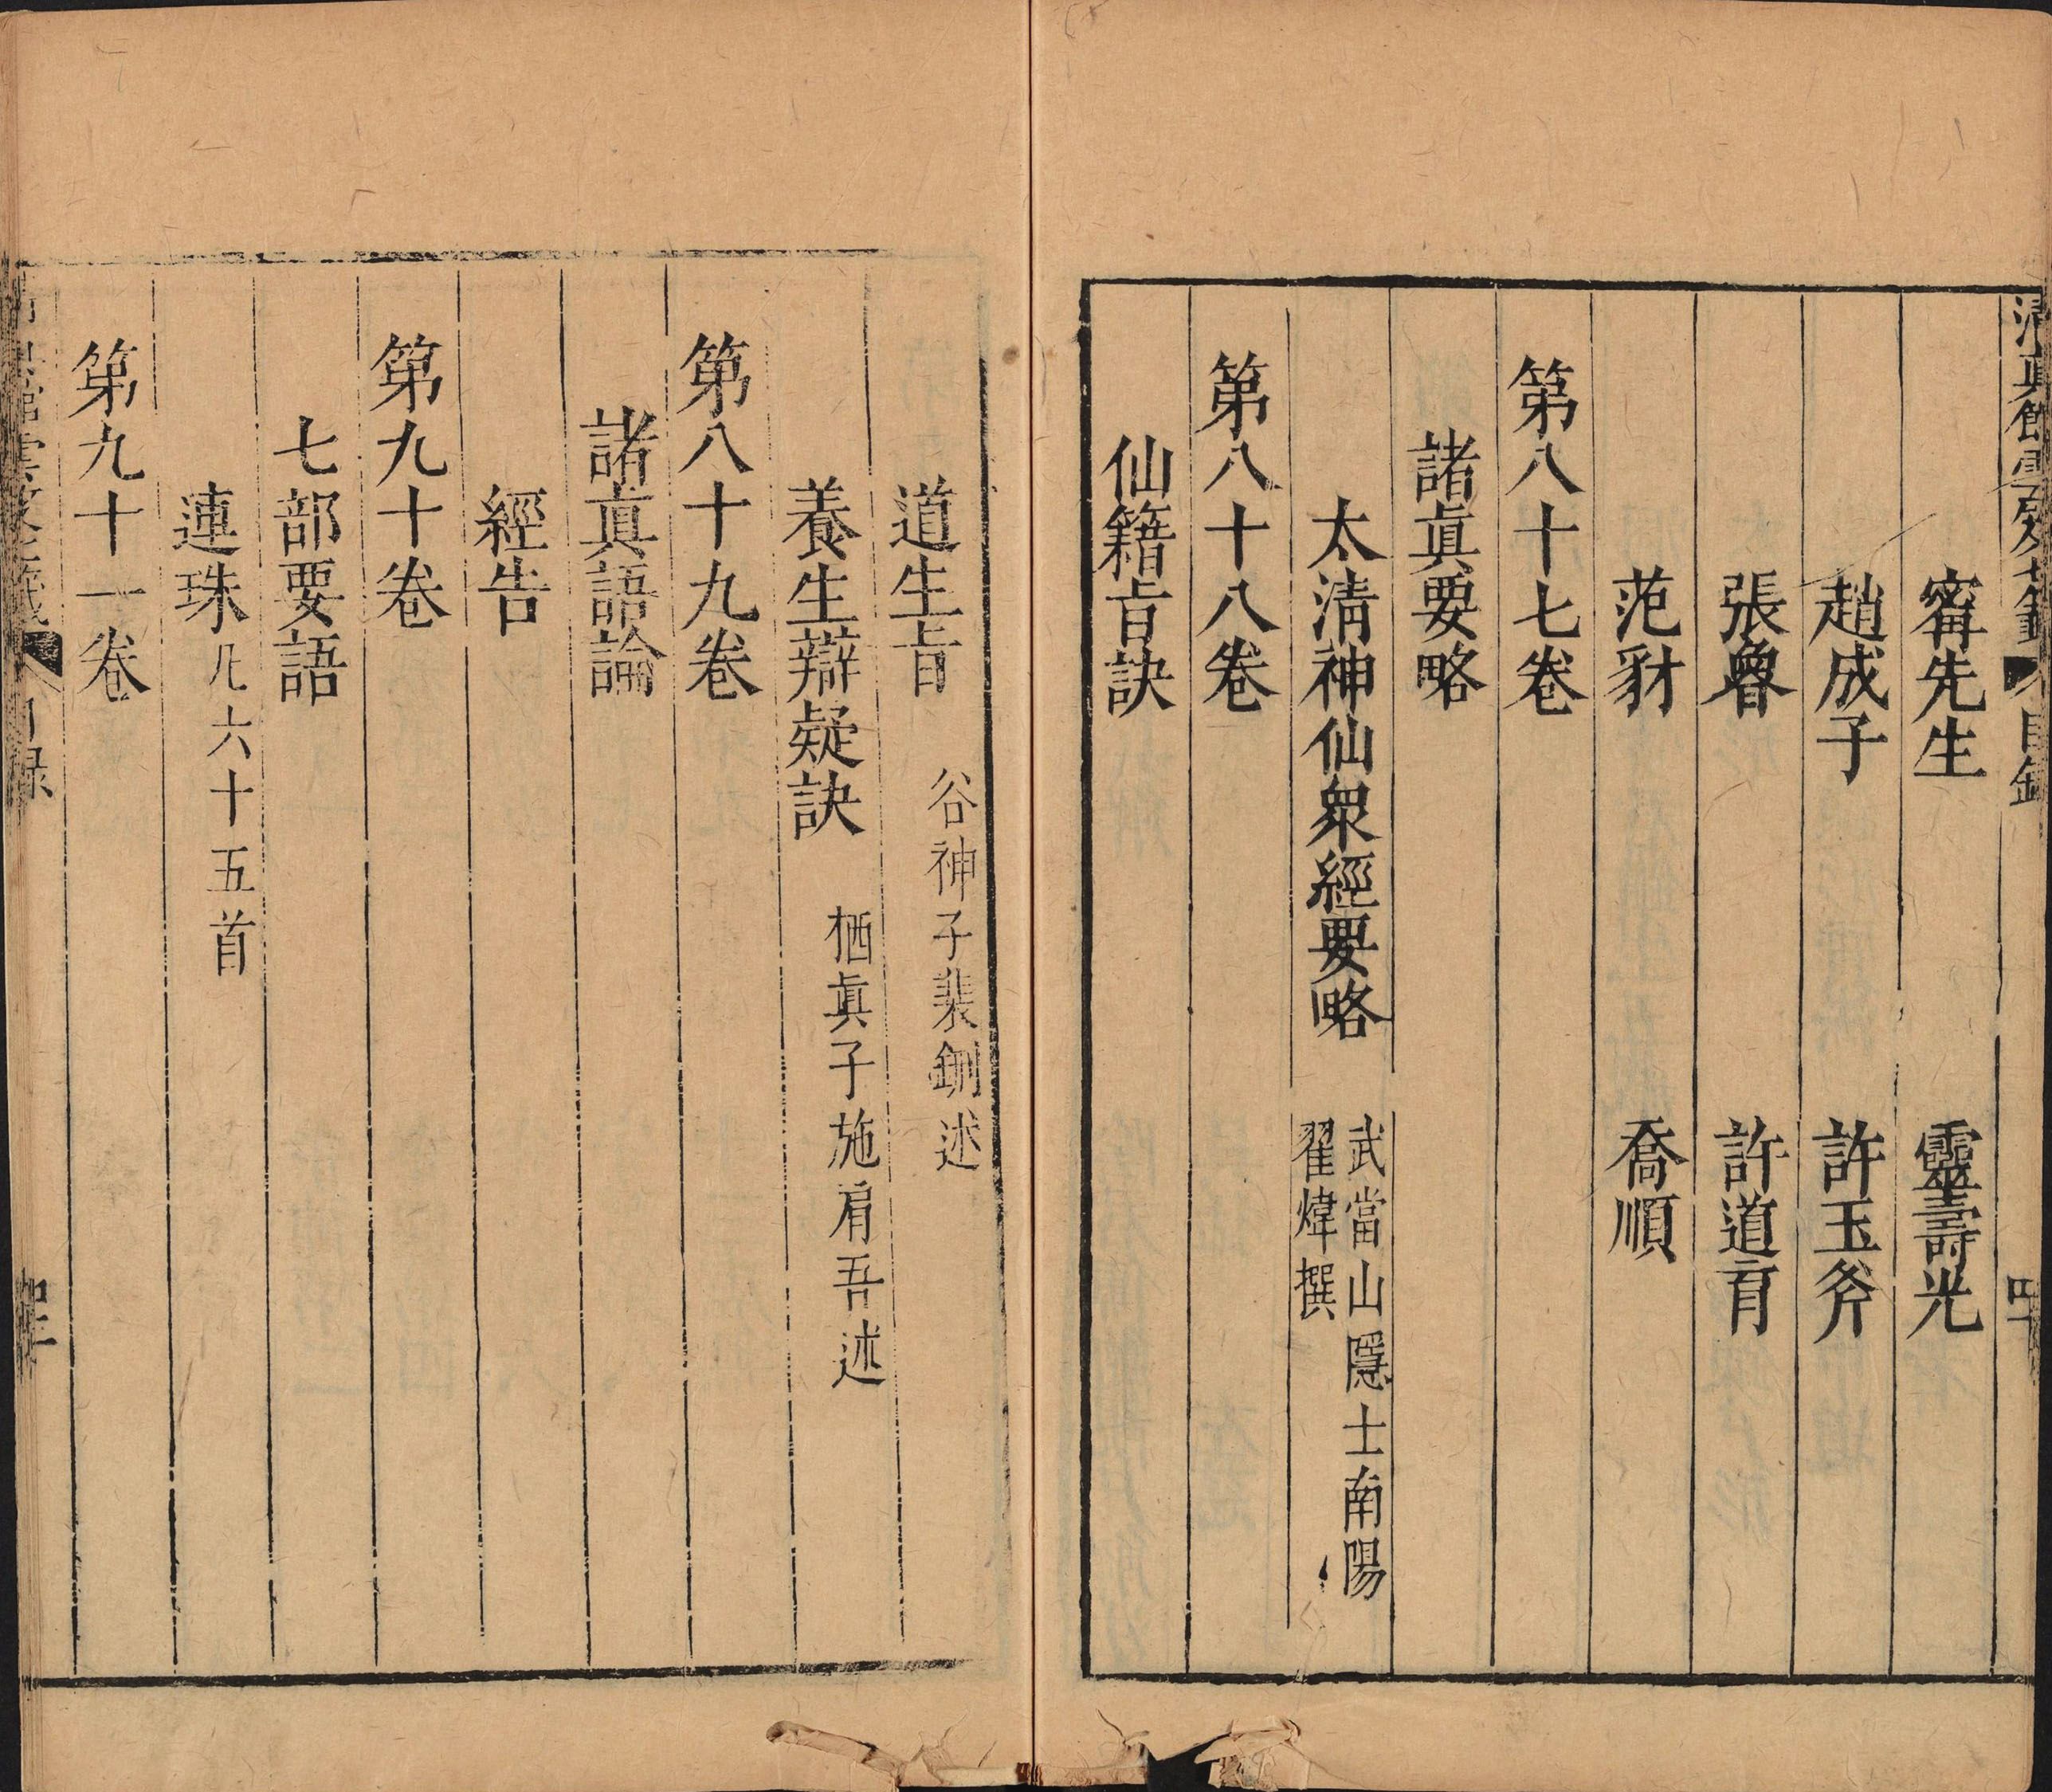 清真館雲笈七籤 目錄 四十
甯先生 靈壽光
趙成子 許玉斧
張魯 許道育
范豺 喬順
第八十七卷
諸眞要略
太清神仙衆經要略 武當山隱士南陽
翟煒撰
第八十八卷
仙籍旨訣
道生旨 谷神子裴鉶述
養生辯疑訣 栖眞子施肩吾述
第八十九卷
諸眞語論
經告
第九十卷
七部要語
連珠 凡六十五首
第九十一卷
館雲笈七籤 目録